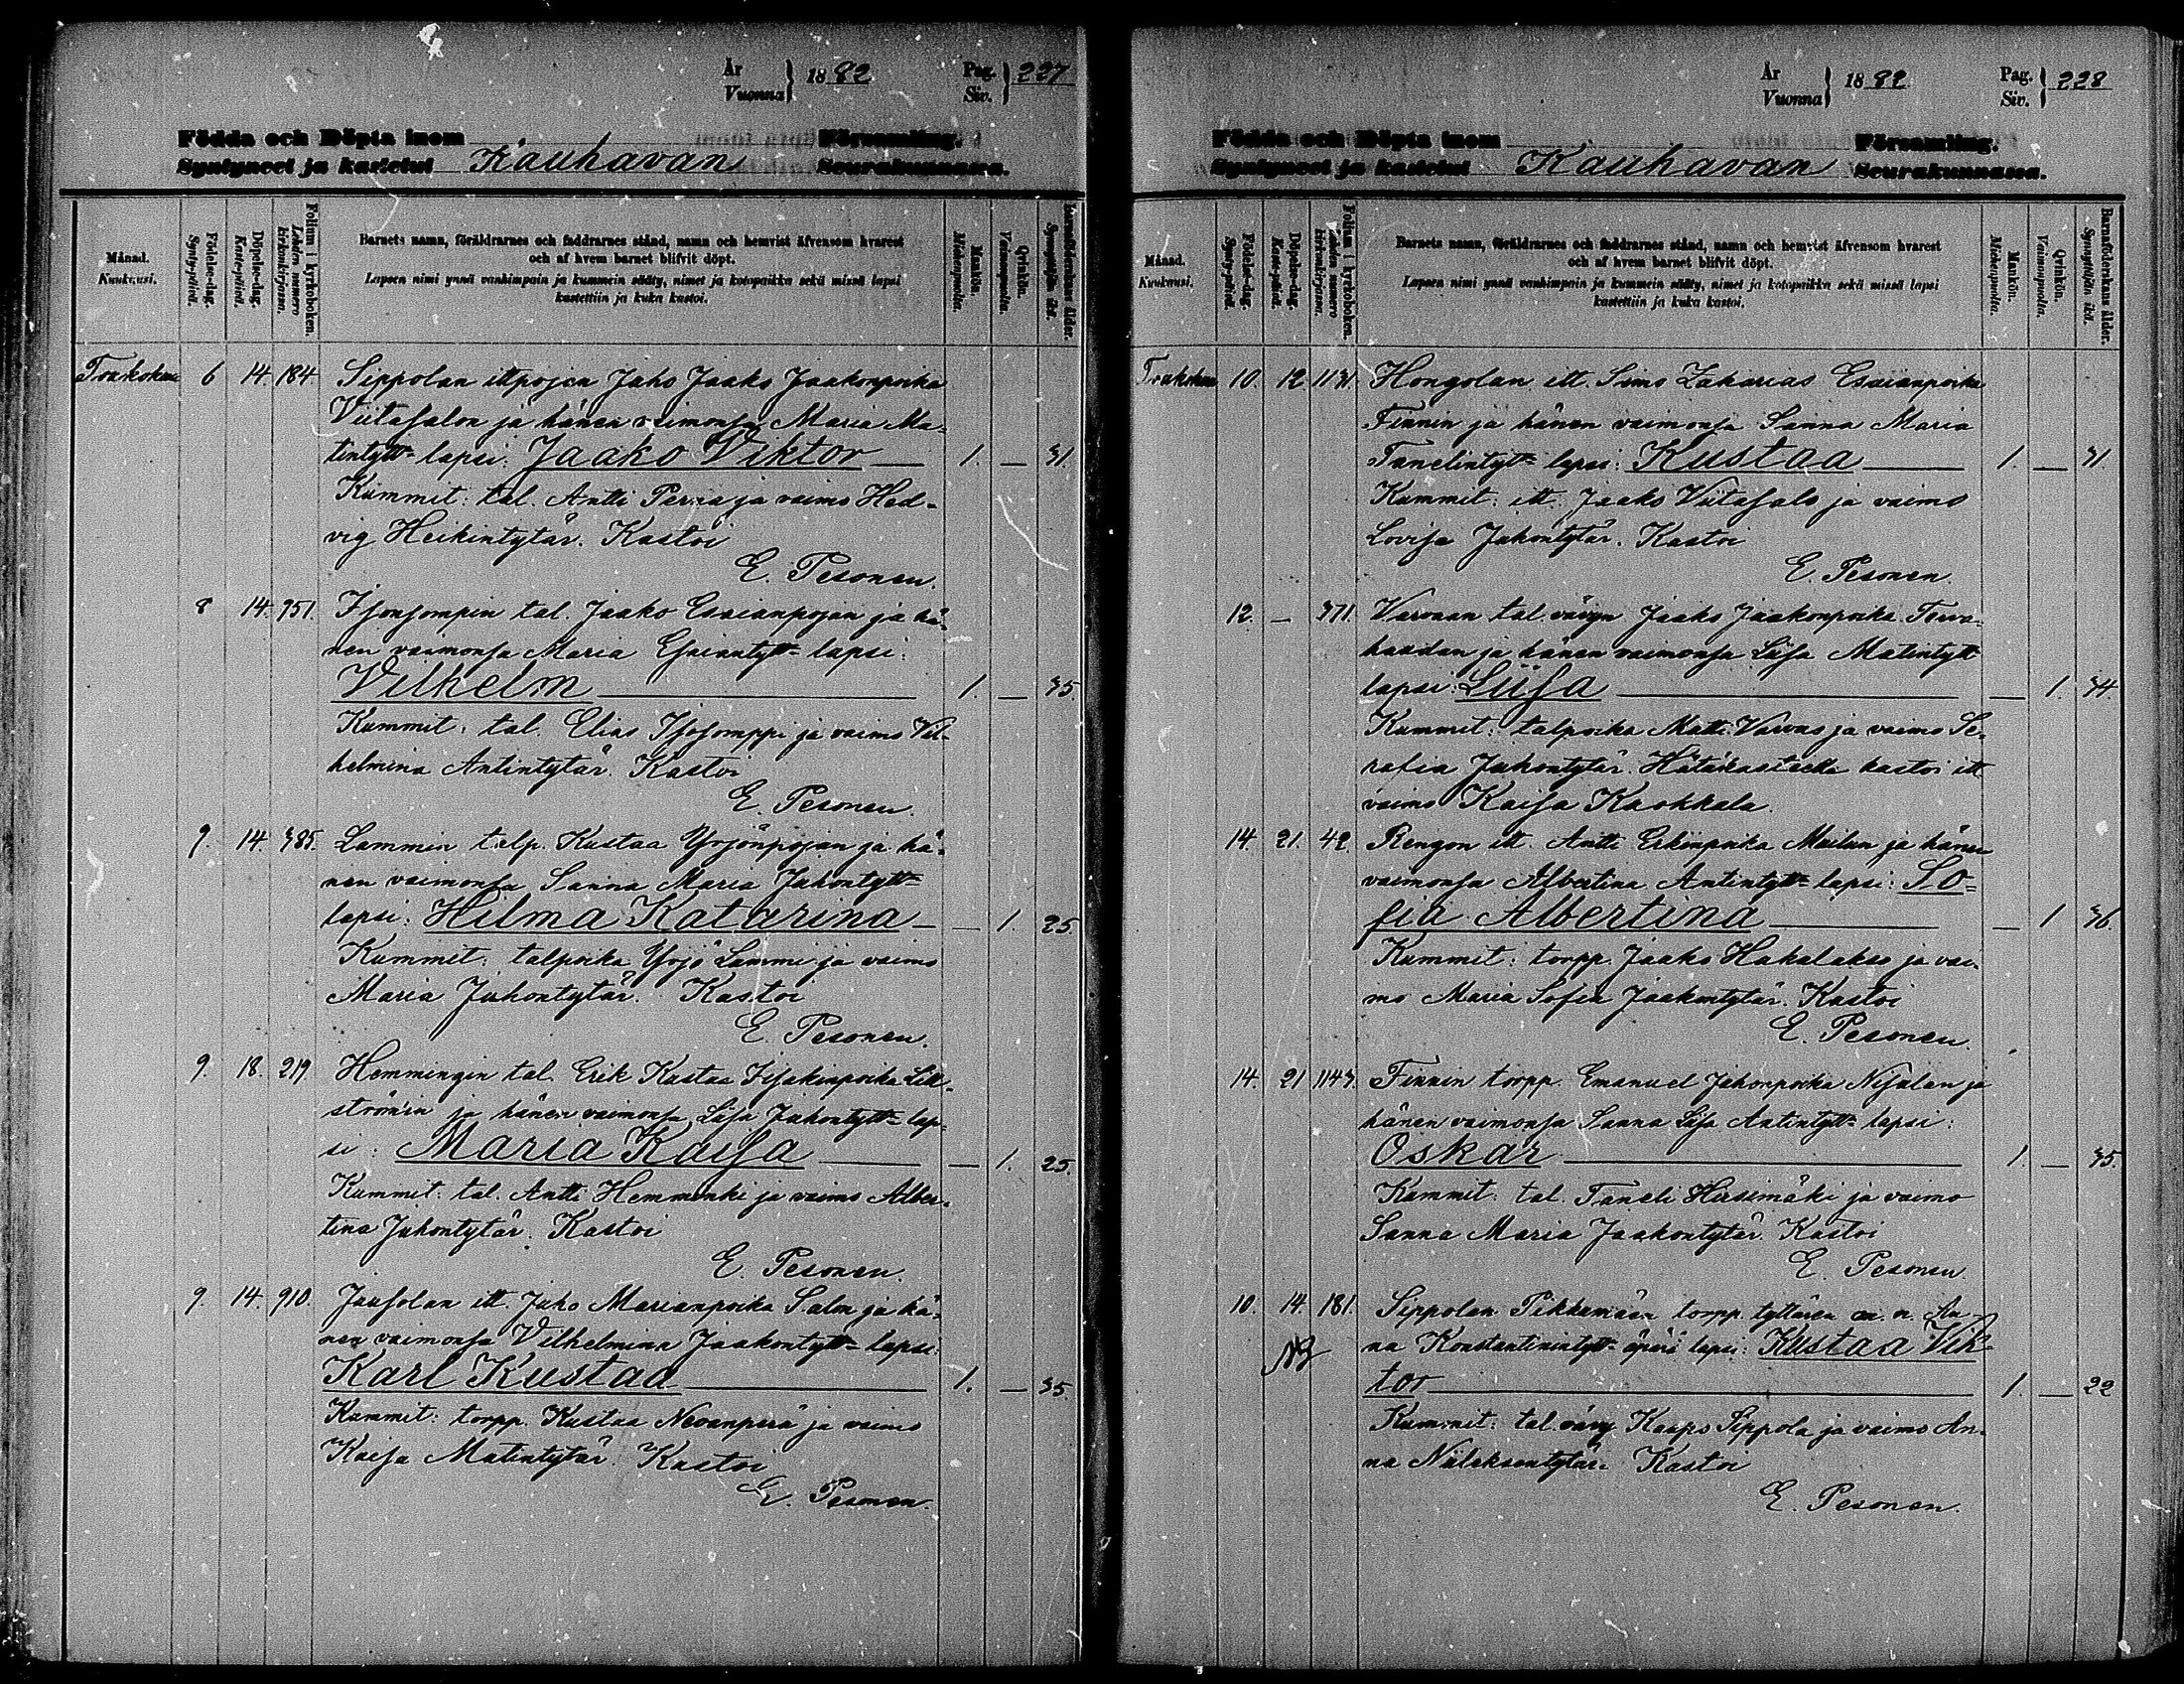 År
Vuonna } 1882
Pag.
Siv. } 227
Födda och Döpta inom Församling.
Syntyneet ja kastetut Kauhavan Seurakunnassa.
Månad.
Kuukausi.
Födelse-dag.
Synty-päivä.
Döpelse-dag.
Kaste-päivä.
Folium i kyrkoboken.
Lehden numero
kirkonkirjassa.
Barnets namn, föräldrarnes och faddrarnes stånd, namn och hemvist äfvensom hvarest
och af hvem barnet blifvit döpt.
Lapsen nimi ynnä vanhimpain ja kummein sääty, nimet ja kotopaikka sekä missä lapsi
kastettiin ja kuka kastoi.
Mankön.
Miehenpuolta.
Qvinkön.
Vaimonpuolta.
Barnaföderskans ålder.
Synnyttäjän ikä.
Toukokuu 6 14. 184. Sippolan itpojen Juho Jaako Jaakonpoika
Viitasalon ja hänen vaimonsa Maria Ma-
tintytt- lapsi: Jaako Viktor 1. — 31.
Kummit: tal. Antti Perna ja vaimo Hed-
vig Heikintytär. Kastoi
E. Pesonen.
8 14. 951. Isonsompin tal. Jaako Esaianpojan ja hä-
nen vaimonsa Maria Esaiantytt- lapsi:
Vilhelm 1. — 35.
Kummit: tal. Elias Isosomppi ja vaimo Vil-
helmina Antintytär. Kastoi
E. Pesonen.
9. 14. 385. Lammin talp. Kustaa Yrjönpojan ja hä-
nen vaimonsa Sanna Maria Juhontytt-
lapsi: Hilma Katarina — 1. 25.
Kummit: talpoika Yrjö Lammi ja vaimo
Maria Juhontytär. Kastoi
E. Pesonen.
9. 18. 219. Hemmingin tal. Erik Kustaa Iisakinpoika Lill-
strömin ja hänen vaimonsa Liisa Juhontytt- lap-
si: Maria Kaisa — 1. 25.
Kummit: tal. Antti Hemminki ja vaimo Alber-
tina Juhontytär. Kastoi
E. Pesonen.
9. 14. 910. Juusolan itt. Juho Marianpoika Salm ja hä-
nen vaimonsa Vilhelmina Jaakontytt- lapsi:
Karl Kustaa 1. — 35.
Kummit: torpp. Kustaa Nevanperä ja vaimo
Kaisa Matintytär. Kastoi
E. Pesonen.
År
Vuonna } 1882
Pag.
Siv. } 228
Födda och Döpta inom Församling.
Syntyneet ja kastetut Kauhavan Seurakunnassa.
Månad.
Kuukausi.
Födelse-dag.
Synty-päivä.
Döpelse-dag.
Kaste-päivä.
Folium i kyrkoboken.
Lehden numero
kirkonkirjassa.
Barnets namn, föräldrarnes och faddrarnes stånd, namn och hemvist äfvensom hvarest
och af hvem barnet blifvit döpt.
Lapsen nimi ynnä vanhimpain ja kummein sääty, nimet ja kotopaikka sekä missä lapsi
kastettiin ja kuka kastoi.
Mankön.
Miehenpuolta.
Qvinkön.
Vaimonpuolta.
Barnaföderskans ålder.
Synnyttäjän ikä.
Toukokuu 10. 12 1131. Hongolan itt. Simo Zakarias Esaianpoika
Finnin ja hänen vaimonsa Sanna Maria
Tanelintytt- lapsi: Kustaa 1. — 31.
Kummit: itt. Jaako Viitasalo ja vaimo
Lovisa Juhontytär. Kastoi
E. Pesonen.
12. — 371. Varvaan tal. vävyn Jaako Jaakonpoika Terva-
haudan ja hänen vaimonsa Liisa Matintytt
lapsi: Liisa — 1. 34
Kummit: talpoika Matti Varvas ja vaimo Se-
rafia Juhontytär. Hätäkasteella kastoi itt
vaimo Kaisa Kuokkala.
14. 21. 42. Rengon itt. Antti Erkinpoika Mailan ja hänen
vaimonsa Albertina Antintytt- lapsi: So-
fia Albertina — 1 36.
Kummit: torpp. Jaako Hakalakso ja vai-
mo Maria Sofia Jaakontytär. Kastoi
E. Pesonen.
14. 21 1143. Finnin torpp. Emanuel Juhonpoika Nisulan ja
hänen vaimonsa Sanna Liisa Antintytt- lapsi:
Oskar 1. — 35.
Kummit: tal. Taneli Hirsimäki ja vaimo
Sanna Maria Jaakontytär. Kastoi
E. Pesonen.
10. 14. 181. Sippolan Pikkumäen torpp. tyttären An-
NB na Konstantinintytt- äpärä lapsi: Kustaa Vik-
tor 1. — 22
Kummit: tal. vävy Kaapo Sippola ja vaimo An-
na Niileksentytär. Kastoi
E. Pesonen.